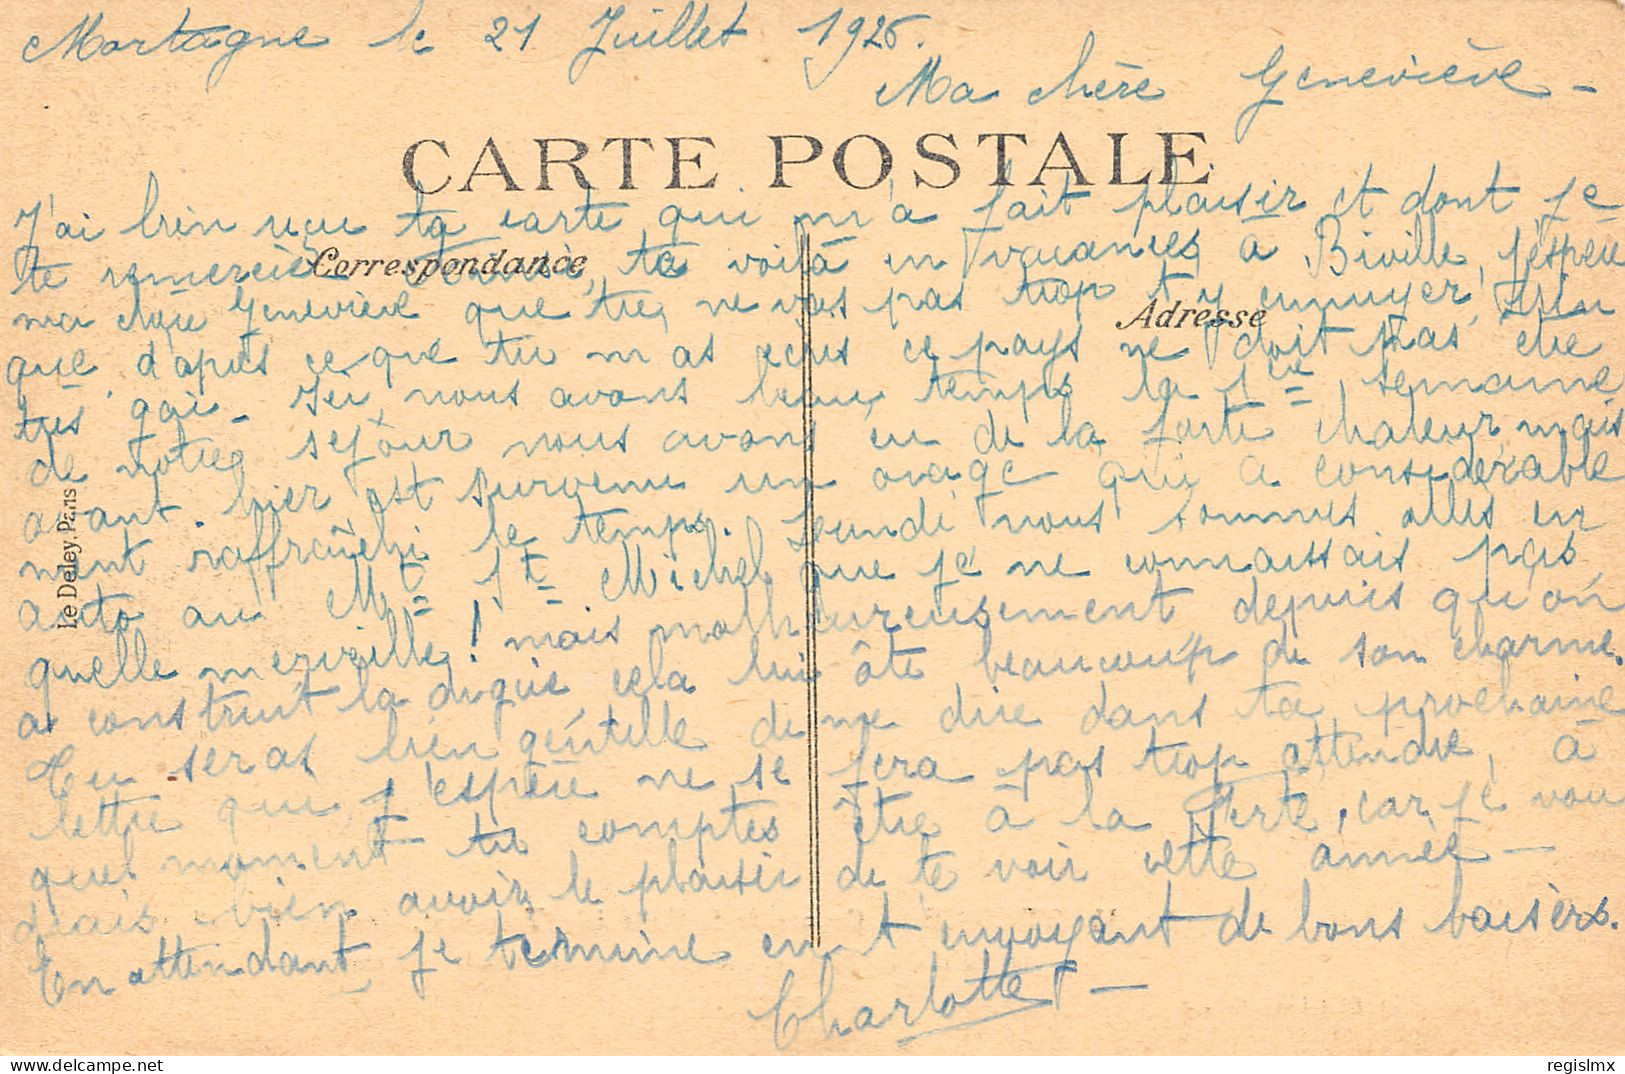 Mortagne le 21 Juillet 1926.
Ma chère Geneviève -
CARTE POSTALE
J'ai bien reçu ta carte qui m'a fait plaisir et dont je
te remercie te voilà en vacances à Biville, j'espère
Correspondance
ma chère Geneviève que tu ne vas pas trop t'y ennuyer, bien
Adresse
que d'après ce que tu m'as écris ce pays ne doit pas être
très gai - Ici nous avons beau temps la 1ère semaine
de notre séjour nous avons eu de la forte chaleur mais
avant-hier est survenu un orage qui a considérable
ment raffraîchi le temps. Lundi nous sommes allés en
auto au Mt St Michel que je ne connaissais pas
quelle merveille ! mais malheureusement depuis qu'on
a construit la digue cela lui ôte beaucoup de son charme.
Tu seras bien gentille de me dire dans ta prochaine
lettre qui j'espère ne se fera pas trop attendre, à
quel moment tu comptes être à la Ferté, car je vou
drais bien avoir le plaisir de te voir cette année -
En attendant je termine en t'envoyant de bons baisers.
Charlotte -
Le Deley, Paris
regislmx